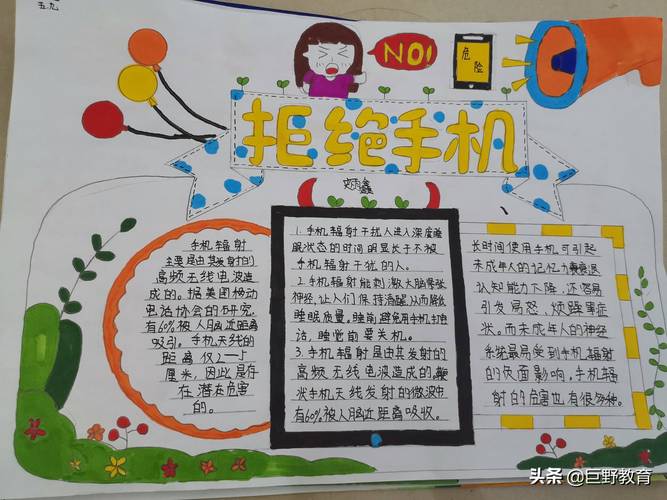 五九
NO!
危
险
拒绝手机
手机辐射
主要是由其发射的
高频无线电波造
成的。据美国移动
电话协会的研究,
有60%被人脑近距离
吸引。手机天线的
距离仅2—5
厘米,因此是存
在潜在危害
的。
1.手机辐射干扰人进入深度睡
眠状态的时间明显长于不被
手机辐射干扰的人。
2.手机辐射能刺激大脑紧张
神经,让人们保持清醒,从而降低
睡眠质量。睡前避免用手机打电
话,睡觉前要关机。
3.手机辐射是由其发射的
高频无线电波造成的。
状手机天线发射的微波中
有60%被人脑近距离吸收。
长时间使用手机可引起
未成年人的记忆力衰退
认知能力下降,还容易
引发局怒、烦躁等症
状。而未成年人的神经
系统最易受到手机辐射
的负面影响。手机辐
射的危害也有很多种。
头条 @巨野教育